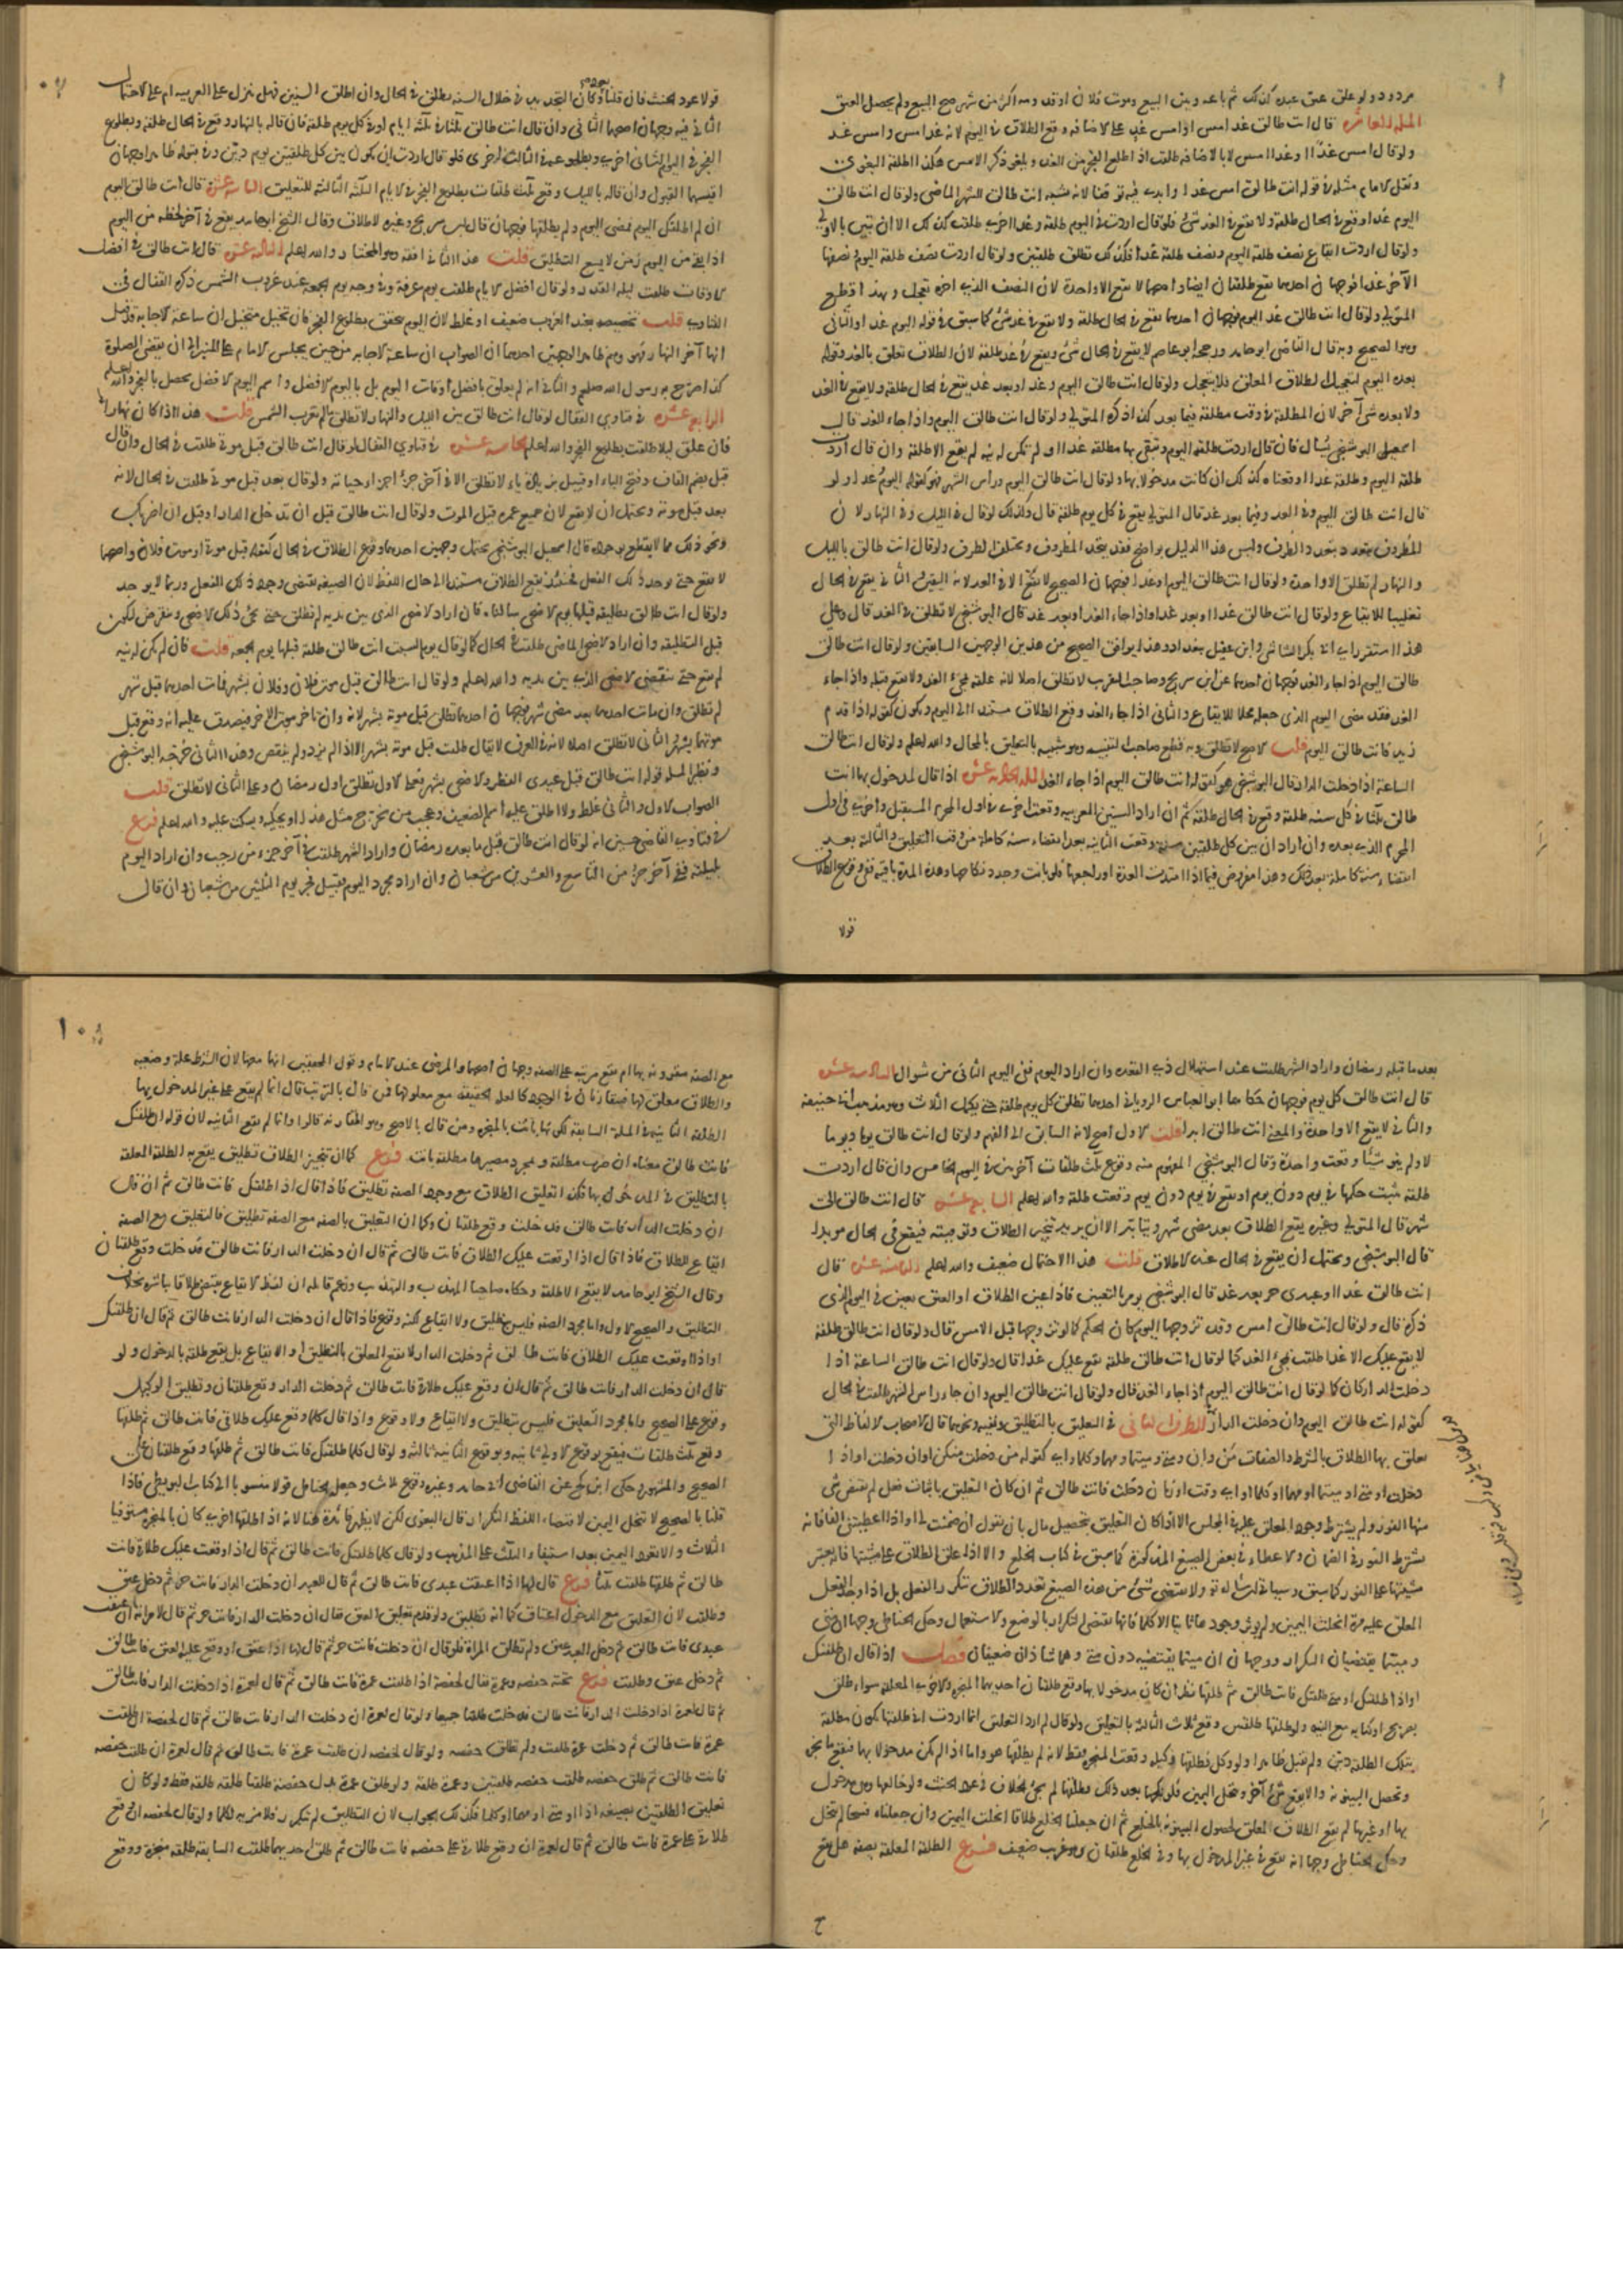 مردود ولو علق عتق عبده كذلك ثم باعه وبين البيع وموت فلان او قدومه اكثر من شهر صح البيع ولم يحصل العتق
المسلة العاشرة قال انت طالق غد امس او امس غد على الاضافة وقع الطلاق في اليوم لانه غد امس وامس غد
ولو قال امس غدا او غدا امس لا بالاضافة طلقت اذا طلع الفجر من الغد ويلغو ذكر الامس هكذا اطلقه البغوي
ونقل الامام مثله في قوله انت طالق امس غدا
اليوم غدا وقع في الحال طلقة ولا يقع في الغد شي فلو قال اردت اليوم طلقة وغدا اخرى طلقت كذلك الا ان تبين بالاولى
ولو قال اردت ايقاع نصف طلقة اليوم ونصف طلقة غدا فكذلك تطلق طلقتين ولو قال اردت نصف طلقة اليوم ونصفها
الآخر غدا فوجهان احدهما تقع طلقتان ايضا واصحهما لا تقع الا واحدة لان النصف الذي اخره تعجل وبهذا قطع
المتولي ولو قال انت طالق غد اليوم فوجهان احدهما تقع في الحال طلقة ولا يقع في غد شي كما سبق في قوله اليوم غدا والثاني
وهو الصحيح وبه قال القاضي ابو حامد ورجحه ابو عاصم لا يقع في الحال شي ويقع في غد طلقة لان الطلاق تعلق بالغد وقوله
بعده اليوم لتعجيل الطلاق المعلق فلا يتعجل ولو قال انت طالق اليوم وغدا وبعد غد يقع في الحال طلقة ولا يقع في الغد
ولا بعده شي آخر لان المطلقة في وقت مطلقة فيما بعده كذا ذكره المتولي ولو قال انت طالق اليوم واذا جاء الغد قال
اسمعيل البوشنجي يسال فان قال اردت طلقة اليوم وتبقى بها مطلقة غدا او لم تكن له نية لم يقع الا طلقة وان قال اردت
طلقة اليوم وطلقة غدا اوقعناه كذلك ان كانت مدخولا بها ولو قال انت طالق اليوم وراس الشهر فهو كقوله اليوم وغدا ولو
قال انت طالق اليوم وفي الغد وفيما بعد غد قال المتولي يقع في كل يوم طلقة قال وكذلك لو قال في الليل وفي النهار لان
المظروف يتعدد بتعدد الظرف وليس هذا الدليل بواضح فقد يتحد المظروف ويختلف الظرف ولو قال انت طالق بالليل
والنهار لم تطلق الا واحدة ولو قال انت طالق اليوم او غدا فوجهان الصحيح لا يقع الا في الغد لانه اليقين والثاني يقع في الحال
تغليبا للايقاع ولو قال انت طالق غدا او بعد غد او اذا جاء الغد او بعد غد قال البوشنجي لا تطلق في الغد قال وعلى
هذا استقر راي ابي بكر الشاشي وابن عقيل ببغداد وهذا يوافق الصحيح من هذين الوجهين السابقين ولو قال انت طالق
طالق اليوم اذا جاء الغد فوجهان احدهما عن ابن سريج وصاحب التقريب لا تطلق اصلا لانه علقه بمجيء الغد ولا يقع قبله واذا جاء
الغد فقد مضى اليوم الذي جعله محلا للايقاع والثاني اذا جاء الغد وقع الطلاق مستندا الى اليوم ويكون كقوله اذا قدم
زيد فانت طالق اليوم قلت الاصح لا تطلق وبه قطع صاحب التنبيه وهو شبيه بالتعليق بالمحال والله اعلم ولو قال انت طالق
الساعة اذا دخلت الدار قال البوشنجي هو كقوله انت طالق اليوم اذا جاء الغد المسلة الحادية عشرة اذا قال لمدخول بها انت
طالق ثلثا في كل سنة طلقة وقع في الحال طلقة ثم ان اراد السنين العربية وقعت اخرى في اول المحرم المستقبل واخرى في اول
المحرم الذي بعده وان اراد ان بين كل طلقتين سنة وقعت الثانية بعد انقضاء سنة كاملة من وقت التعليق والثالثة بعد
انقضاء سنة كاملة بعد ذلك وهذا مفروض فيما اذا امتدت العدة او راجعها فلو بانت وجدد نكاحها وهذه المدة باقية ففي وقوع الطلاق
قولا
قولا عود الحنث فان قلنا يعود وكان التجديد في خلال السنة تطلق في الحال وان اطلق السنين فهل ينزل على العربية ام على الاحتمال
الثاني فيه وجهان اصحهما الثاني وان قال انت طالق ثلثا في ثلثة ايام او في كل يوم طلقة فان قاله بالنهار وقع في الحال طلقة وبطلوع
الفجر في اليوم الثاني اخرى وبطلوعه في الثالث اخرى فلو قال اردت ان يكون بين كل طلقتين يوم دين وفي قبوله ظاهرا وجهان
اقيسهما القبول وان قاله بالليل وقع ثلث طلقات بطلوع الفجر في الايام الثلثة التالية للتعليق الثانية عشرة قال انت طالق اليوم
ان لم اطلقك اليوم فمضى اليوم ولم يطلقها فوجهان قال ابن سريج وغيره لا طلاق وقال الشيخ ابو حامد يقع في آخر لحظة من اليوم
اذا بقي من اليوم زمن لا يسع التطليق قلت هذا الثاني افقه وهو المختار والله اعلم الثالثة عشرة قال انت طالق في افضل
الاوقات طلقت ليلة القدر ولو قال افضل الايام طلقت يوم عرفة وفي وجه يوم الجمعة عند غروب الشمس ذكره القفال في
الفتاوي قلت تخصيصه بعند الغروب ضعيف او غلط لان اليوم يتحقق بطلوع الفجر فان تخيل متخيل ان ساعة الاجابة قد قيل
انها آخر النهار فهو وهم ظاهر لوجهين احدهما ان الصواب ان ساعة الاجابة من حين يجلس الامام على المنبر الى ان تقضى الصلوة
كذا صرح به رسول الله صلعم والثاني انه لم يعلق بافضل اوقات اليوم بل باليوم الافضل واسم اليوم الافضل يحصل بالفجر والله اعلم
الرابعة عشرة في فتاوي القفال لو قال انت طالق بين الليل والنهار لا تطلق ما لم تغرب الشمس قلت هذا اذا كان نهارا
فان علق ليلا طلقت بطلوع الفجر والله اعلم الخامسة عشرة في فتاوي القفال لو قال انت طالق قبل موتي طلقت في الحال وان قال
قبل بضم القاف وفتح الباء او قبيل بزيادة ياء لا تطلق الا في آخر جزء من اجزاء حياته ولو قال بعد قبل موتي طلقت في الحال لانه
بعد قبل موته ويحتمل ان لا يقع لان جميع عمره قبل الموت ولو قال انت طالق قبل ان تدخلي الدار او قبل ان اضربك
ونحو ذلك مما لا يقطع بوجوده قال اسمعيل البوشنجي يحتمل وجهين احدهما وقوع الطلاق في الحال كقوله قبل موتي او موت فلان واصحهما
لا يقع حتى يوجد ذلك الفعل فحينئذ يقع الطلاق مستندا الى حال اللفظ لان الصيغة تقتضي وجود ذلك الفعل وربما لا يوجد
ولو قال انت طالق تطليقة قبلها يوم الاضحى سالناه فان اراد الاضحى الذي بين يديه لم تطلق حتى يجيء ذلك الاضحى وينقرض ليكون
قبل التطليقة وان اراد الاضحى الماضي طلقت في الحال كما لو قال يوم السبت انت طالق طلقة قبلها يوم الجمعة قلت فان لم يكن له نية
لم يقع حتى ينقضي الاضحى الذي بين يديه والله اعلم ولو قال انت طالق قبل موت فلان وفلان بشهر فمات احدهما قبل شهر
لم تطلق وان مات احدهما بعد مضي شهر فوجهان احدهما تطلق قبل موته بشهر لانه وان تاخر موت الاخر فيصدق عليه انه وقع قبل
موتهما بشهر والثاني لا تطلق اصلا لانه في العرف لا يقال طلقت قبل موته بشهر الا اذا لم يزد ولم ينقص وهذا الثاني خرجه البوشنجي
ونظير المسلة قوله انت طالق قبل عيدي الفطر والاضحى بشهر فعلى الاول تطلق اول رمضان وعلى الثاني لا تطلق قلت
الصواب الاول والثاني غلط ولا اطلق عليه اسم الضعيف وعجب من تخرج مثل هذا او يحكيه ويسكت عليه والله اعلم فرع
في فتاوي القاضي حسين انه لو قال انت طالق قبل ما بعده رمضان واراد الشهر طلقت في آخر جزء من رجب وان اراد اليوم
بليلته ففي آخر جزء من التاسع والعشرين من شعبان وان اراد مجرد اليوم فقبيل فجر يوم الثلثين من شعبان وان قال
بعد ما قبله رمضان واراد الشهر طلقت عند استهلال ذي القعدة وان اراد اليوم ففي اليوم الثاني من شوال السادسة عشرة
قال انت طالق كل يوم فوجهان حكاهما ابو العباس الروياني احدهما تطلق كل يوم طلقة حتى يكمل الثلاث وهو مذهب ابي حنيفة
والثاني لا يقع الا واحدة والمعنى انت طالق ابدا قلت الاول اصح لانه السابق الى الفهم ولو قال انت طالق يوما ويوما
لا ولم ينو شيئا وقعت واحدة وقال البوشنجي المفهوم منه وقوع ثلث طلقات آخرهن في اليوم الخامس وان قال اردت
طلقة يثبت حكمها في يوم دون يوم او تقع في يوم دون يوم وقعت طلقة والله اعلم السابعة عشرة قال انت طالق الى
شهر قال المتولي وغيره يقع الطلاق بعد مضي شهر ويتابد الا ان يريد تنجيز الطلاق وتوقيته فيقع في الحال مؤبدا
قال البوشنجي ويحتمل ان يقع في الحال عند الاطلاق قلت هذا الاحتمال ضعيف والله اعلم الثامنة عشرة قال
انت طالق غدا او عبدي حر بعد غد قال البوشنجي يومر بالتعيين فاذا عين الطلاق او العتق تعين في اليوم الذي
ذكره قال ولو قال انت طالق امس وقد تزوجها اليوم كان الحكم كما لو تزوجها قبل الامس قال ولو قال انت طالق طلقة
لا يقع عليك الا غدا طلقت بمجيء الغد كما لو قال انت طالق طلقة تقع عليك غدا قال ولو قال انت طالق الساعة اذا
دخلت الدار كان كما لو قال انت طالق اليوم اذا جاء الغد قال ولو قال انت طالق اليوم وان جاء راس الشهر طلقت في الحال
كقوله انت طالق اليوم وان دخلت الدار الطرف الثاني في التعليق بالتطليق ونفيه ونحوهما قال الاصحاب الالفاظ التي
يعلق بها الطلاق بالشرط والصفات من وان ومتى ومتى ما ومهما وكلما واي كقوله من دخلت منكن او ان دخلت او اذا
دخلت او متى او متى ما او مهما او كلما او اي وقت او زمان دخلت فانت طالق ثم ان كان التعليق باثبات فعل لم يقتض شي
منها الفور ولم يشترط وجود المعلق عليه في المجلس الا اذا كان التعليق بتحصيل مال بان يقول ان ضمنت لي او اذا اعطيتني الفا فانه
يشترط الفور في الضمان والاعطاء في بعض الصيغ المذكورة كما سبق في كتاب الخلع والا اذا علق الطلاق على مشيتها فانه يعتبر
مشيتها على الفور كما سبق وسياتي ان شاء الله تع ولا يقتضي شي من هذه الصيغ تعدد الطلاق بتكرر الفعل بل اذا وجد الفعل
المعلق عليه مرة انحلت اليمين ولم يؤثر وجوده ثانيا الا كلما فانها تقتضي التكرار بالوضع والاستعمال وحكى الحناطي وجها ان متى
ومتى ما يقتضيان التكرار ووجها ان متى ما يقتضيه دون متى وهما شاذان ضعيفان فصل اذا قال ان طلقتك
او اذا طلقتك او متى طلقتك فانت طالق ثم طلقها نظر ان كان مدخولا بها وقع طلقتان احديهما المنجزة والاخرى المعلقة سواء طلق
بصريح او كناية مع النية ولو طلقها طلقتين وقع ثلاث الثالثة بالتعليق ولو قال لم ارد التعليق انما اردت اني اذا طلقتها تكون مطلقة
بتلك الطلقة دين ولم يقبل ظاهرا ولو وكل فطلقها وكيله وقعت المنجزة فقط لانه لم يطلقها هو واما اذا لم تكن مدخولا بها فيقع ما نجز
وتحصل البينونة ولا يقع شي آخر وتنحل اليمين فلو نكحها بعد ذلك وطلقها لم يجئ الخلاف في عود الحنث ولو خالعها وهي مدخول
بها او غيرها لم يقع الطلاق المعلق لحصول البينونة بالخلع ثم ان جعلنا الخلع طلاقا انحلت اليمين وان جعلناه فسخا لم تنحل
وحكى الحناطي وجها انه يقع في غير المدخول بها وفي الخلع طلقتان وهو غريب ضعيف فرع الطلقة المعلقة بصفة هل تقع
مع الصفة مقترنة بها ام تقع مرتبة على الصفة وجهان اصحهما والمرضي عند الامام وقول المحققين انها معها لان الشرط علة وضعية
والطلاق معلق بها فيتقارنان في الوجود كالعلة الحقيقية مع معلولها فمن قال بالترتيب قال انما لم يقع على غير المدخول بها
الطلقة الثانية في المسلة السابقة لكونها بانت بالمنجزة ومن قال بالاصح وهو المقارنة قالوا انما لم تقع الثانية لان قوله ان طلقتك
فانت طالق معناه ان صرت مطلقة وبمجرد مصيرها مطلقة بانت فرع كما ان تنجيز الطلاق تطليق يقع به الطلقة المعلقة
بالتطليق في المدخول بها فكذا تعليق الطلاق مع وجود الصفة تطليق فاذا قال اذا طلقتك فانت طالق ثم ان قال
ان دخلت الدار فانت طالق فدخلت وقع طلقتان وكما ان التعليق بالصفة مع الصفة تطليق فالتعليق مع الصفة
ايقاع للطلاق فاذا قال اذا اوقعت عليك الطلاق فانت طالق ثم قال ان دخلت الدار فانت طالق فدخلت وقع طلقتان
وقال الشيخ ابو حامد لا يقع الا طلقة وحكاه صاحبا المهذب والتهذيب وزعم قائله ان لفظ الايقاع يقتضي طلاقا باشره بخلاف
التطليق والصحيح الاول واما مجرد الصفة فليس بتطليق ولا ايقاع لكنه وقوع فاذا قال ان دخلت الدار فانت طالق ثم قال ان طلقتك
او اذا اوقعت عليك الطلاق فانت طالق ثم دخلت الدار لا يقع المعلق بالتطليق او الايقاع بل يقع طلقة بالدخول ولو
قال ان دخلت الدار فانت طالق ثم قال ان وقع عليك طلاقي فانت طالق ثم دخلت الدار وقع طلقتان وتطليق الوكيل
وقوع على الصحيح واما مجرد التعليق فليس بتطليق ولا ايقاع ولا وقوع واذا قال كلما وقع عليك طلاقي فانت طالق ثم طلقها
وقع ثلث طلقات فيقع بوقوع الاولى ثانية وبوقوع الثانية ثالثة ولو قال كلما طلقتك فانت طالق ثم طلقها وقع طلقتان على
الصحيح والمشهور وحكى ابن كج عن القاضي ابي حامد وغيره وقوع ثلاث وجعله الحناطي قولا منسوبا الى كتاب البويطي فاذا
قلنا بالصحيح لا تنحل اليمين لاقتضاء اللفظ التكرار قال البغوي لكن لا يظهر فائدة هنا لانه اذا طلقها اخرى كان بالمنجزة مستوفيا
الثلاث ولا تعود اليمين بعد استيفاء الثلث على المذهب ولو قال كلما طلقتك فانت طالق ثم قال اذا اوقعت عليك طلاقي فانت
طالق ثم طلقها طلقت ثلثا فرع قال لها اذا اعتقت عبدي فانت طالق ثم قال للعبد ان دخلت الدار فانت حر ثم دخل عتق
وطلقت لان التعليق مع الدخول اعتاق كما انه تطليق ولو قدم تعليق العتق فقال ان دخلت الدار فانت حر ثم قال لامراته ان اعتقت
عبدي فانت طالق ثم دخل العبد عتق ولم تطلق المراة فلو قال ان دخلت فانت حر ثم قال لها اذا عتق او وقع عليه العتق فانت طالق
ثم دخل عتق وطلقت فرع تحته حفصة وعمرة فقال لحفصة اذا طلقت عمرة فانت طالق ثم قال لعمرة اذا دخلت الدار فانت طالق
ثم قال لعمرة اذا دخلت الدار فانت طالق فدخلت طلقتا جميعا ولو قال لعمرة ان دخلت الدار فانت طالق ثم قال لحفصة ان طلقت
عمرة فانت طالق ثم دخلت عمرة طلقت ولم تطلق حفصة ولو قال لحفصة ان طلقت عمرة فانت طالق ثم قال لعمرة ان طلقت حفصة
فانت طالق ثم طلق حفصة طلقت حفصة طلقتين وعمرة طلقة ولو طلق عمرة بدل حفصة طلقتا طلقة طلقة فقط ولو كان
تعليق الطلقتين بصيغة اذا او متى او مهما او كلما فكذلك الجواب لان التطليق لم يتكرر فلا مزية لكلما ولو قال لحفصة ان وقع
طلاقي على عمرة فانت طالق ثم قال لعمرة ان وقع طلاقي على حفصة فانت طالق ثم طلق احديهما طلقت السابقة طلقة منجزة ووقع